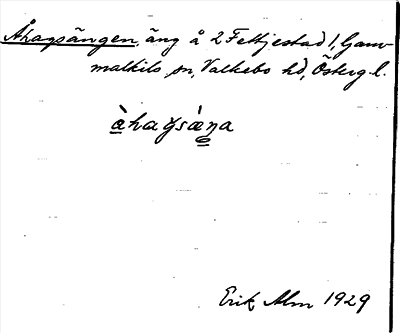 Åhagsängen, äng å 2 Fettjestad 1, Gam-
malkils sn, Valkebo hd, Östergl.
àhagsæ̀ŋa
Erik Alm 1929